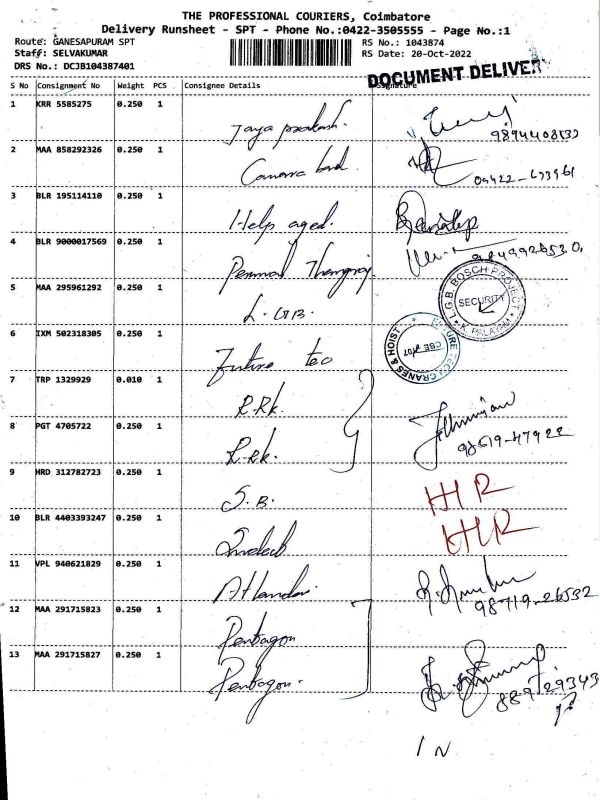 THE PROFESSIONAL COURIERS, Coimbatore
Delivery Runsheet - SPT - Phone No.:0422-3505555 - Page No.:1
Route: GANESAPURAM SPT RS No.: 1043874
Staff: SELVAKUMAR RS Date: 20-Oct-2022
DRS No.: DCJB104387401
DOCUMENT DELIVER
S No Consignment No Weight PCS Consignee Details Signature
1 KRR 5585275 0.250 1
Jaya prakash 9894408532
2 MAA 858292326 0.250 1
Canara bank
3 BLR 195114110 0.250 1
Help aged.
4 BLR 9000017569 0.250 1
Perumal Thangaraj
5 MAA 295961292 0.250 1
L.G.B. L.G.B. BOSCH PROJECT SECURITY
6 IXM 502318305 0.250 1
Future tec CRANES & HOIST
7 TRP 1329929 0.010 1
R.RK.
8 PGT 4705722 0.250 1
R.RK. 98619-47922
9 HRD 312782723 0.250 1
S.B. HR
10 BLR 4403393247 0.250 1
HR
11 VPL 940621829 0.250 1
98719-26532
12 MAA 291715823 0.250 1
Pentagon
13 MAA 291715827 0.250 1
Pentagon. 889729343
IN